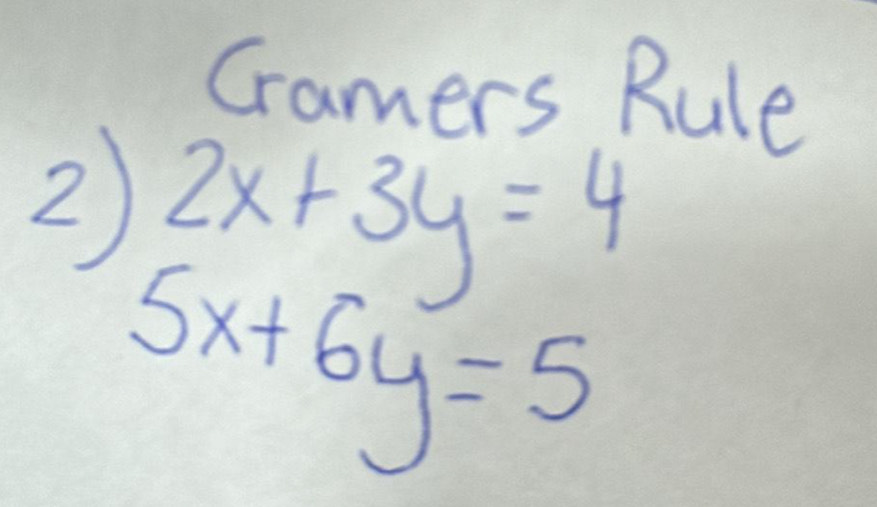 Cramers Rule
2) 2x+3y=4
5x+6y=5